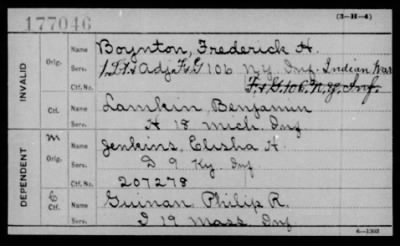 177046
(3-H-4)
INVALID
Orig. Name Boynton, Frederick H.
Serv. 1 Lt & Adj F&G 106 N.Y. Inf. Indian War
Ctf. No. F&G 106 N.Y. Inf.
Ctf. Name Lamkin Benjamin
Serv. H 18 Mich Inf
DEPENDENT
M Orig. Name Jenkins, Elisha A
Serv. D 9 Ky. Inf
Ctf. No. 207278
C Ctf. Name Guinan Philip R.
Serv. I 19 Mass Inf